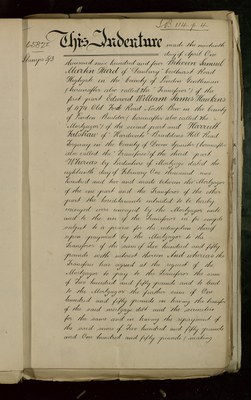 This Indenture made the nineteenth
day of April One
thousand nine hundred and four Between Samuel
Martin Heard of
Highgate in the County of London Gentleman
(hereinafter also called the "Transferor") of the
first part Edward William James Hawkins
of 679 Old Kent Road North Row in the County
of London Builder (hereinafter also called the
"Mortgagor") of the second part and Horrell
of Road
in the County of
also called the "Transferee") of the third part
Whereas by Indenture of Mortgage dated the
eighteenth day of February One thousand nine
hundred and two and made between the Mortgagor
of the one part and the Transferor of the other
part the hereditaments intended to be hereby
assigned were assigned by the Mortgagor unto
and to the use of the Transferor in fee simple
subject to a proviso for the redemption thereof
upon payment by the Mortgagor to the
Transferor of the sum of Two hundred and fifty
pounds with interest thereon And whereas the
Transferee has agreed at the request of the
Mortgagor to pay to the Transferor the sum
of Two hundred and fifty pounds and to lend
to the Mortgagor the further sum of One
hundred and fifty pounds on having the transfer
of the said mortgage debt and the securities
for the same and on having the repayment of
the said sums of Two hundred and fifty pounds
and One hundred and fifty pounds making